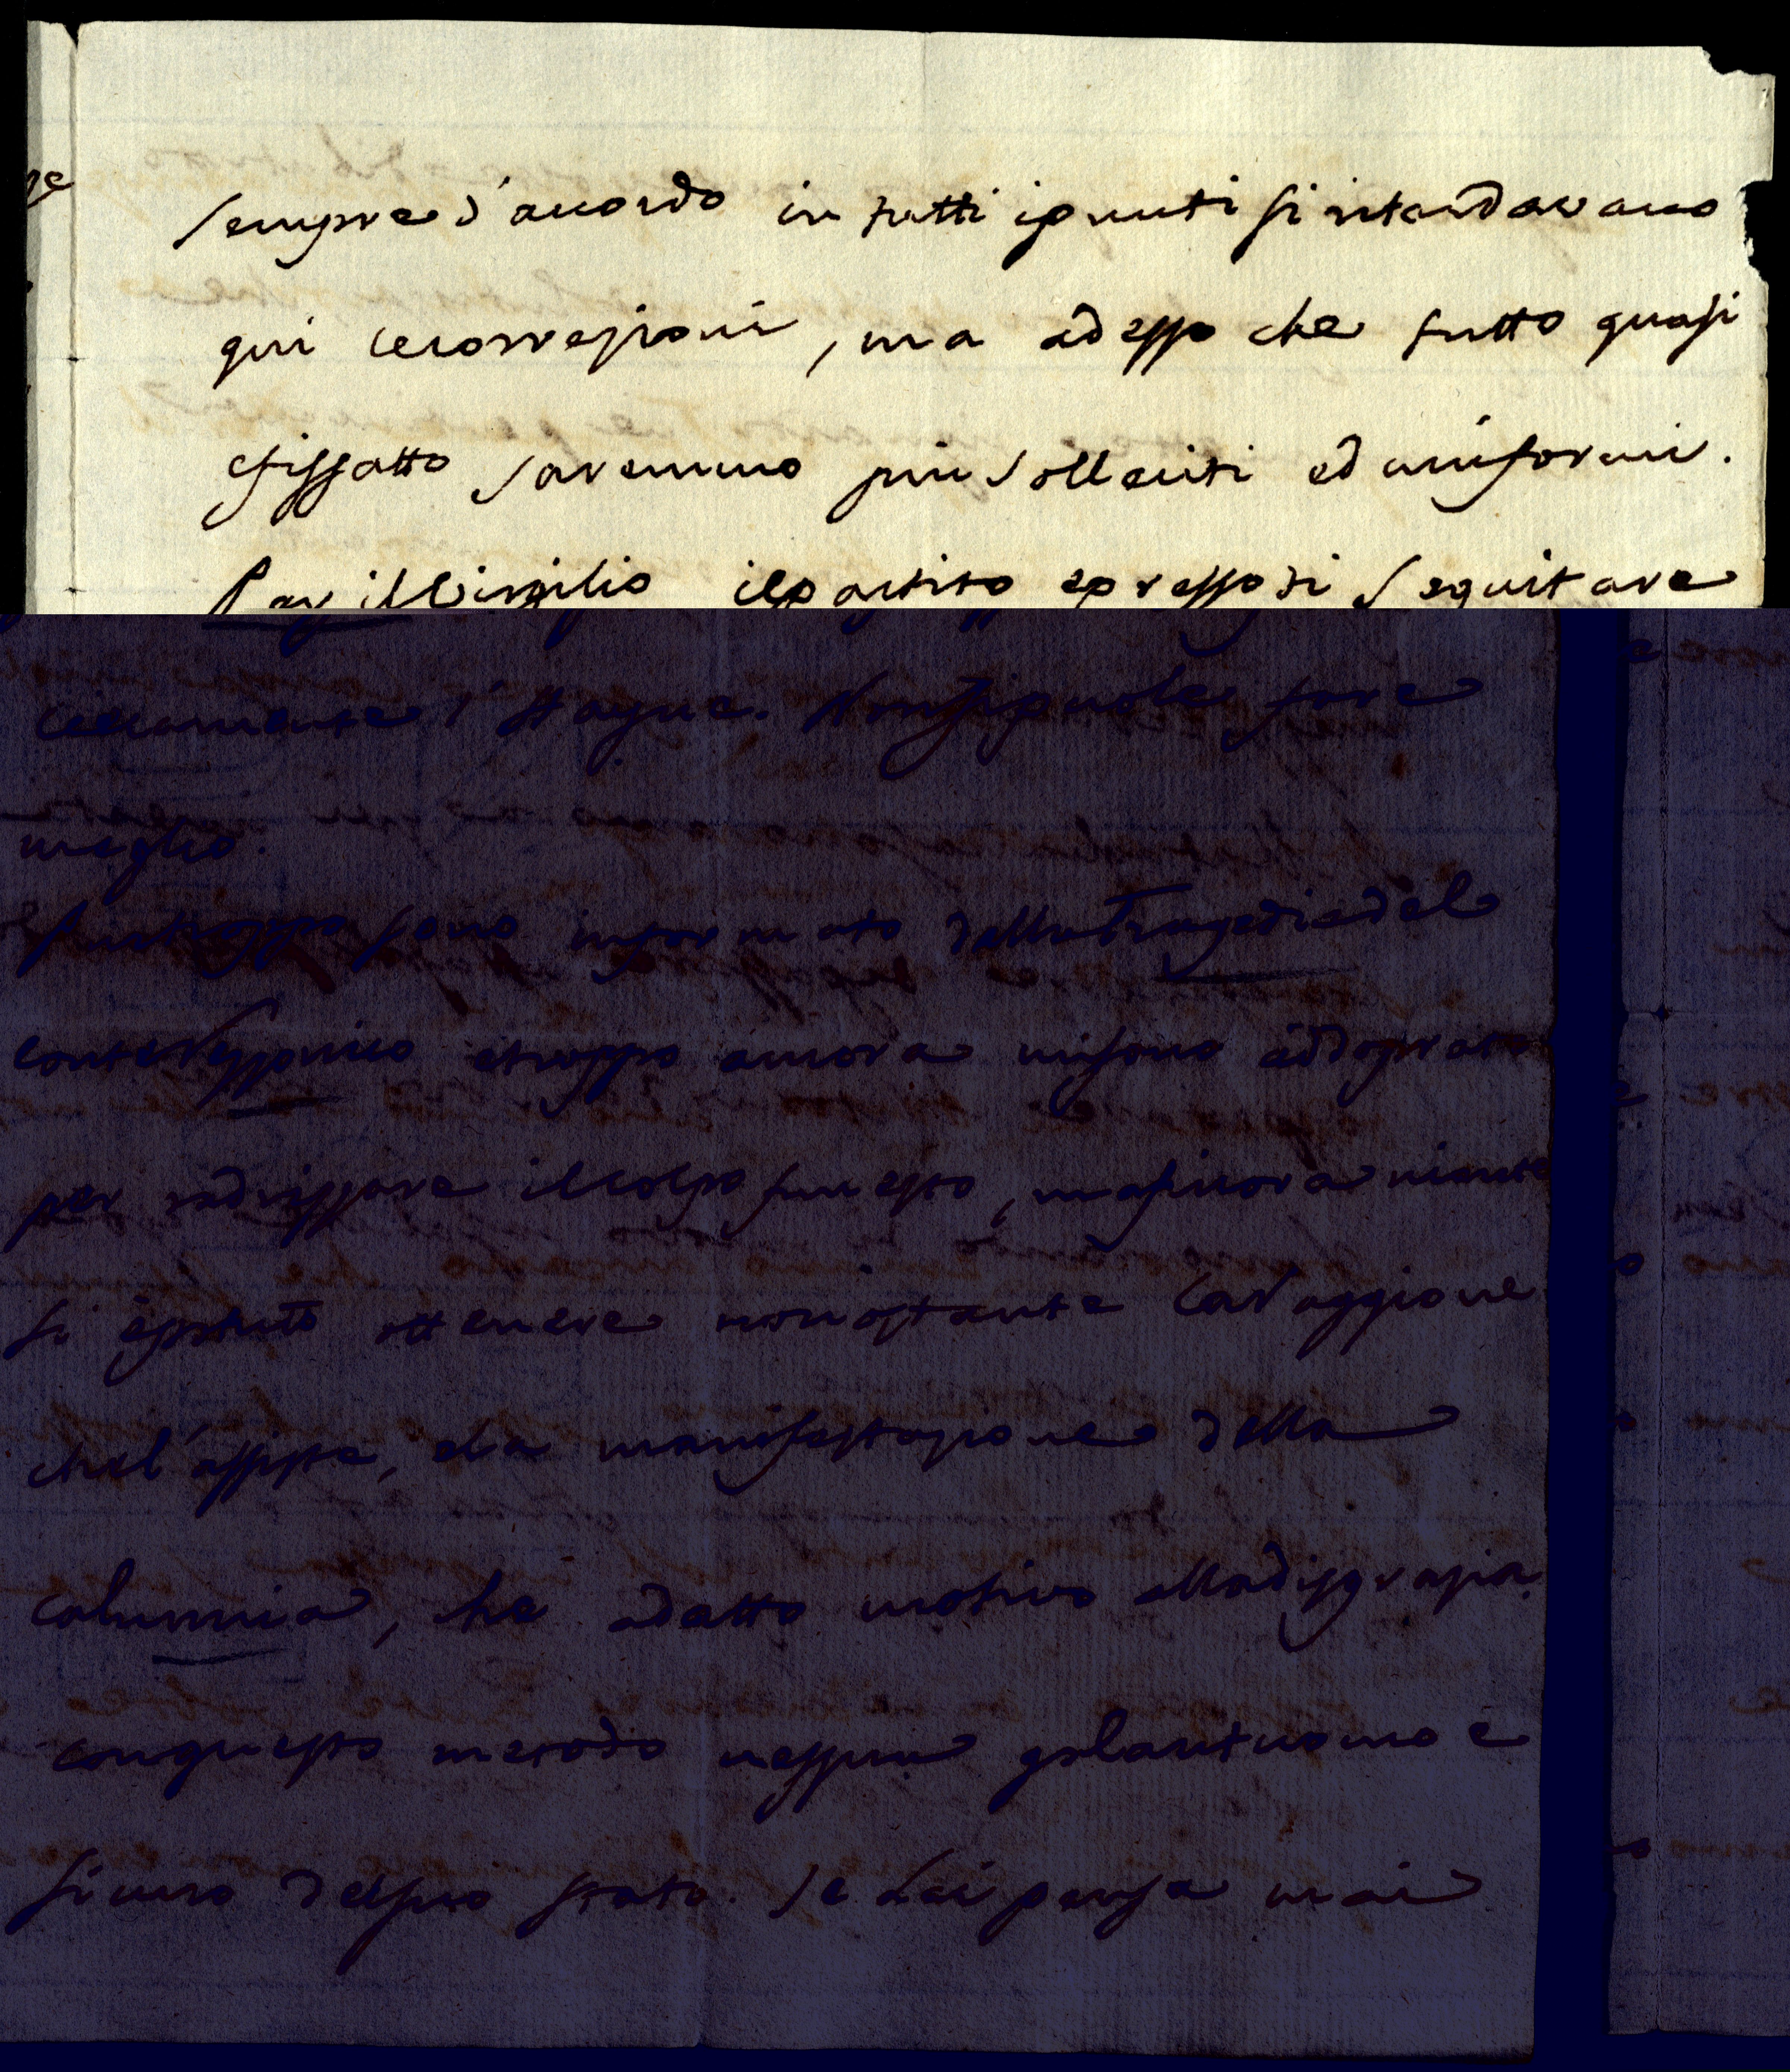 sempre d'accordo in tutti i punti si ritardavano
qui le correzioni, ma adesso che tutto quasi
è fissatto saremmo piu solleciti ed uniformi.
Per il Virgilio il partito e presso di seguitare
certamente l'Hayne. Non si puole fare
meglio.
Purtroppo sono informato della Tragedia del
conte e troppo ancora mi sono addoprato
per radrizzare il colpo funesto, ma sinora niente
si è potuto ottenere nonostante la raggione
che l'assiste, e la manifestazione della
calunnia, che a datto motivo alla disgrazia.
con questo metodo nessun galantuomo è
sicuro del suo stato. Se Lei pensa mai